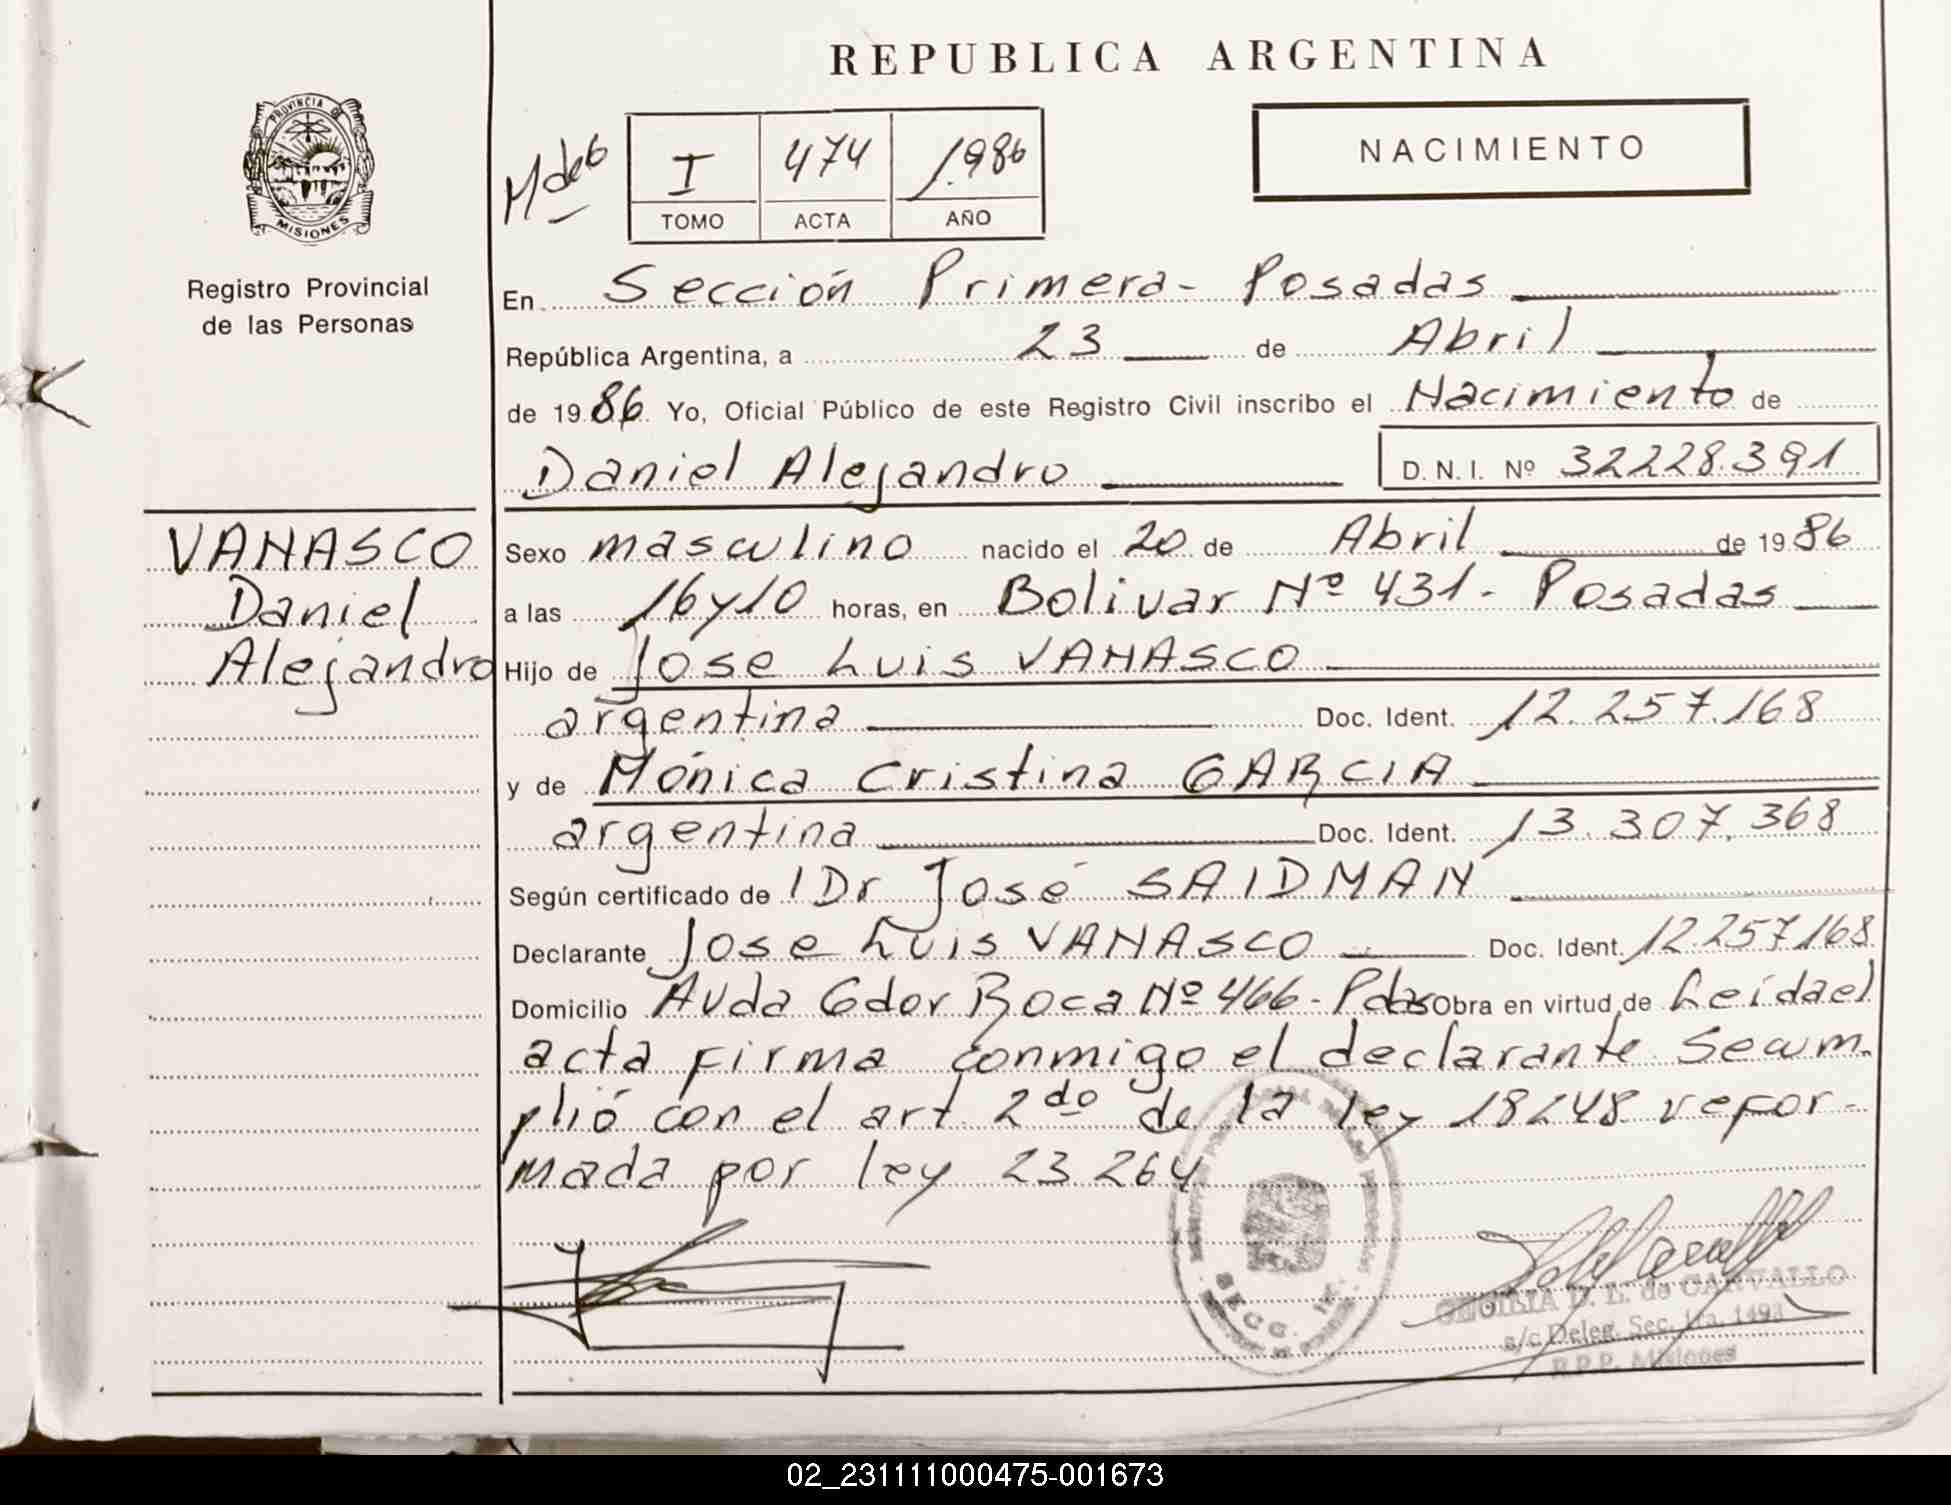 REPUBLICA ARGENTINA
PROVINCIA DE
MISIONES
Registro Provincial
de las Personas
M de 6
I 474 1.986
TOMO ACTA AÑO
NACIMIENTO
En Sección Primera - Posadas
República Argentina, a 23 de Abril
de 1986 Yo, Oficial Público de este Registro Civil inscribo el Nacimiento de
Daniel Alejandro D. N. I. Nº 32228.391
VANASCO
Daniel
Alejandro
Sexo masculino nacido el 20 de Abril de 1986
a las 16 y 10 horas, en Bolivar Nº 431 - Posadas
Hijo de Jose Luis VANASCO
argentina Doc. Ident. 12.257.168
y de Mónica Cristina GARCIA
argentina Doc. Ident. 13.307.368
Según certificado de Dr José SAIDMAN
Declarante Jose Luis VANASCO Doc. Ident. 12.257.168
Domicilio Avda Gdor Roca Nº 466 - Pdas Obra en virtud de Leída el
acta firma conmigo el declarante Se cum-
plió con el art 2do de la ley 18248 refor-
mada por ley 23.264
SECC. 
CECILIA D. L. de CARVALLO
a/c Deleg. Sec. 1ra. 1493
R.P.P. Misiones
02_231111000475-001673